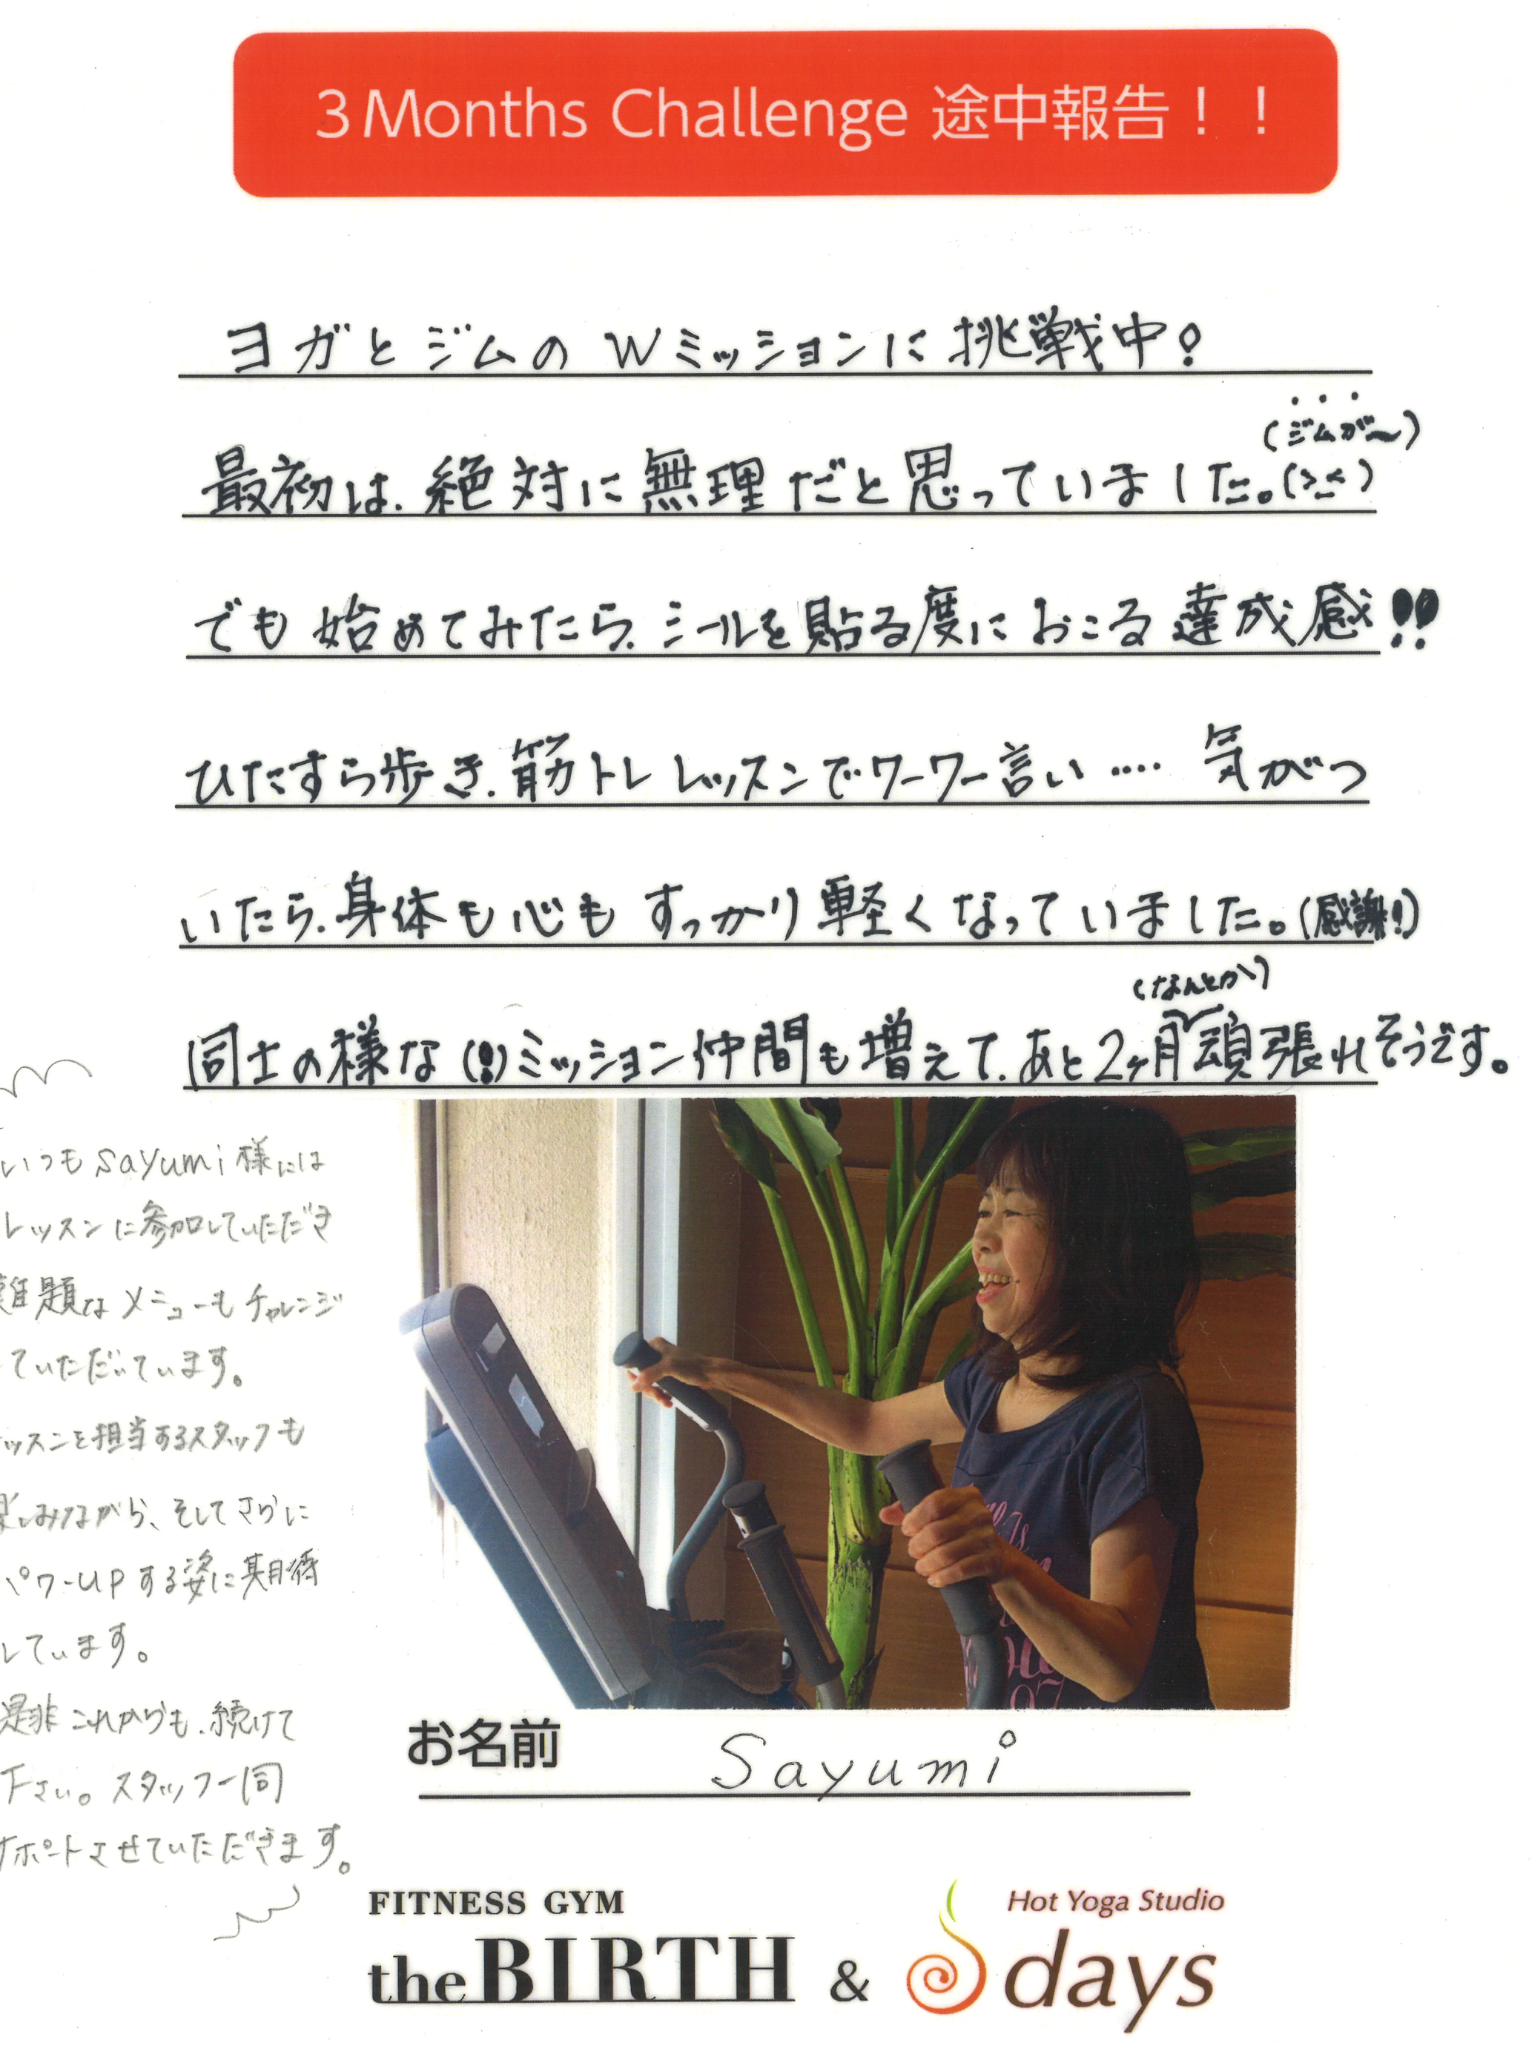 3 Months Challenge 途中報告！！
ヨガとジムのWミッションに挑戦中!
(ジムが〜)
最初は、絶対に無理だと思っていました。(>_<)
でも始めてみたら、シールを貼る度におこる達成感!!
ひたすら歩き、筋トレレッスンでワーワー言い‥‥ 気がつ
いたら、身体も心もすっかり軽くなっていました。(感謝!)
(なんとか)
同士の様な(!)ミッション仲間も増えて、あと2ヶ月頑張れそうです。
いつもsayumi様には
レッスンに参加していただき
難題なメニューもチャレンジ
していただいています。
レッスンを担当するスタッフも
楽しみながら、そしてさらに
パワーUPする姿に期待
しています。
是非これからも、続けて
下さい。スタッフ一同
サポートさせていただきます。
お名前 Sayumi
FITNESS GYM
the BIRTH &
Hot Yoga Studio
days